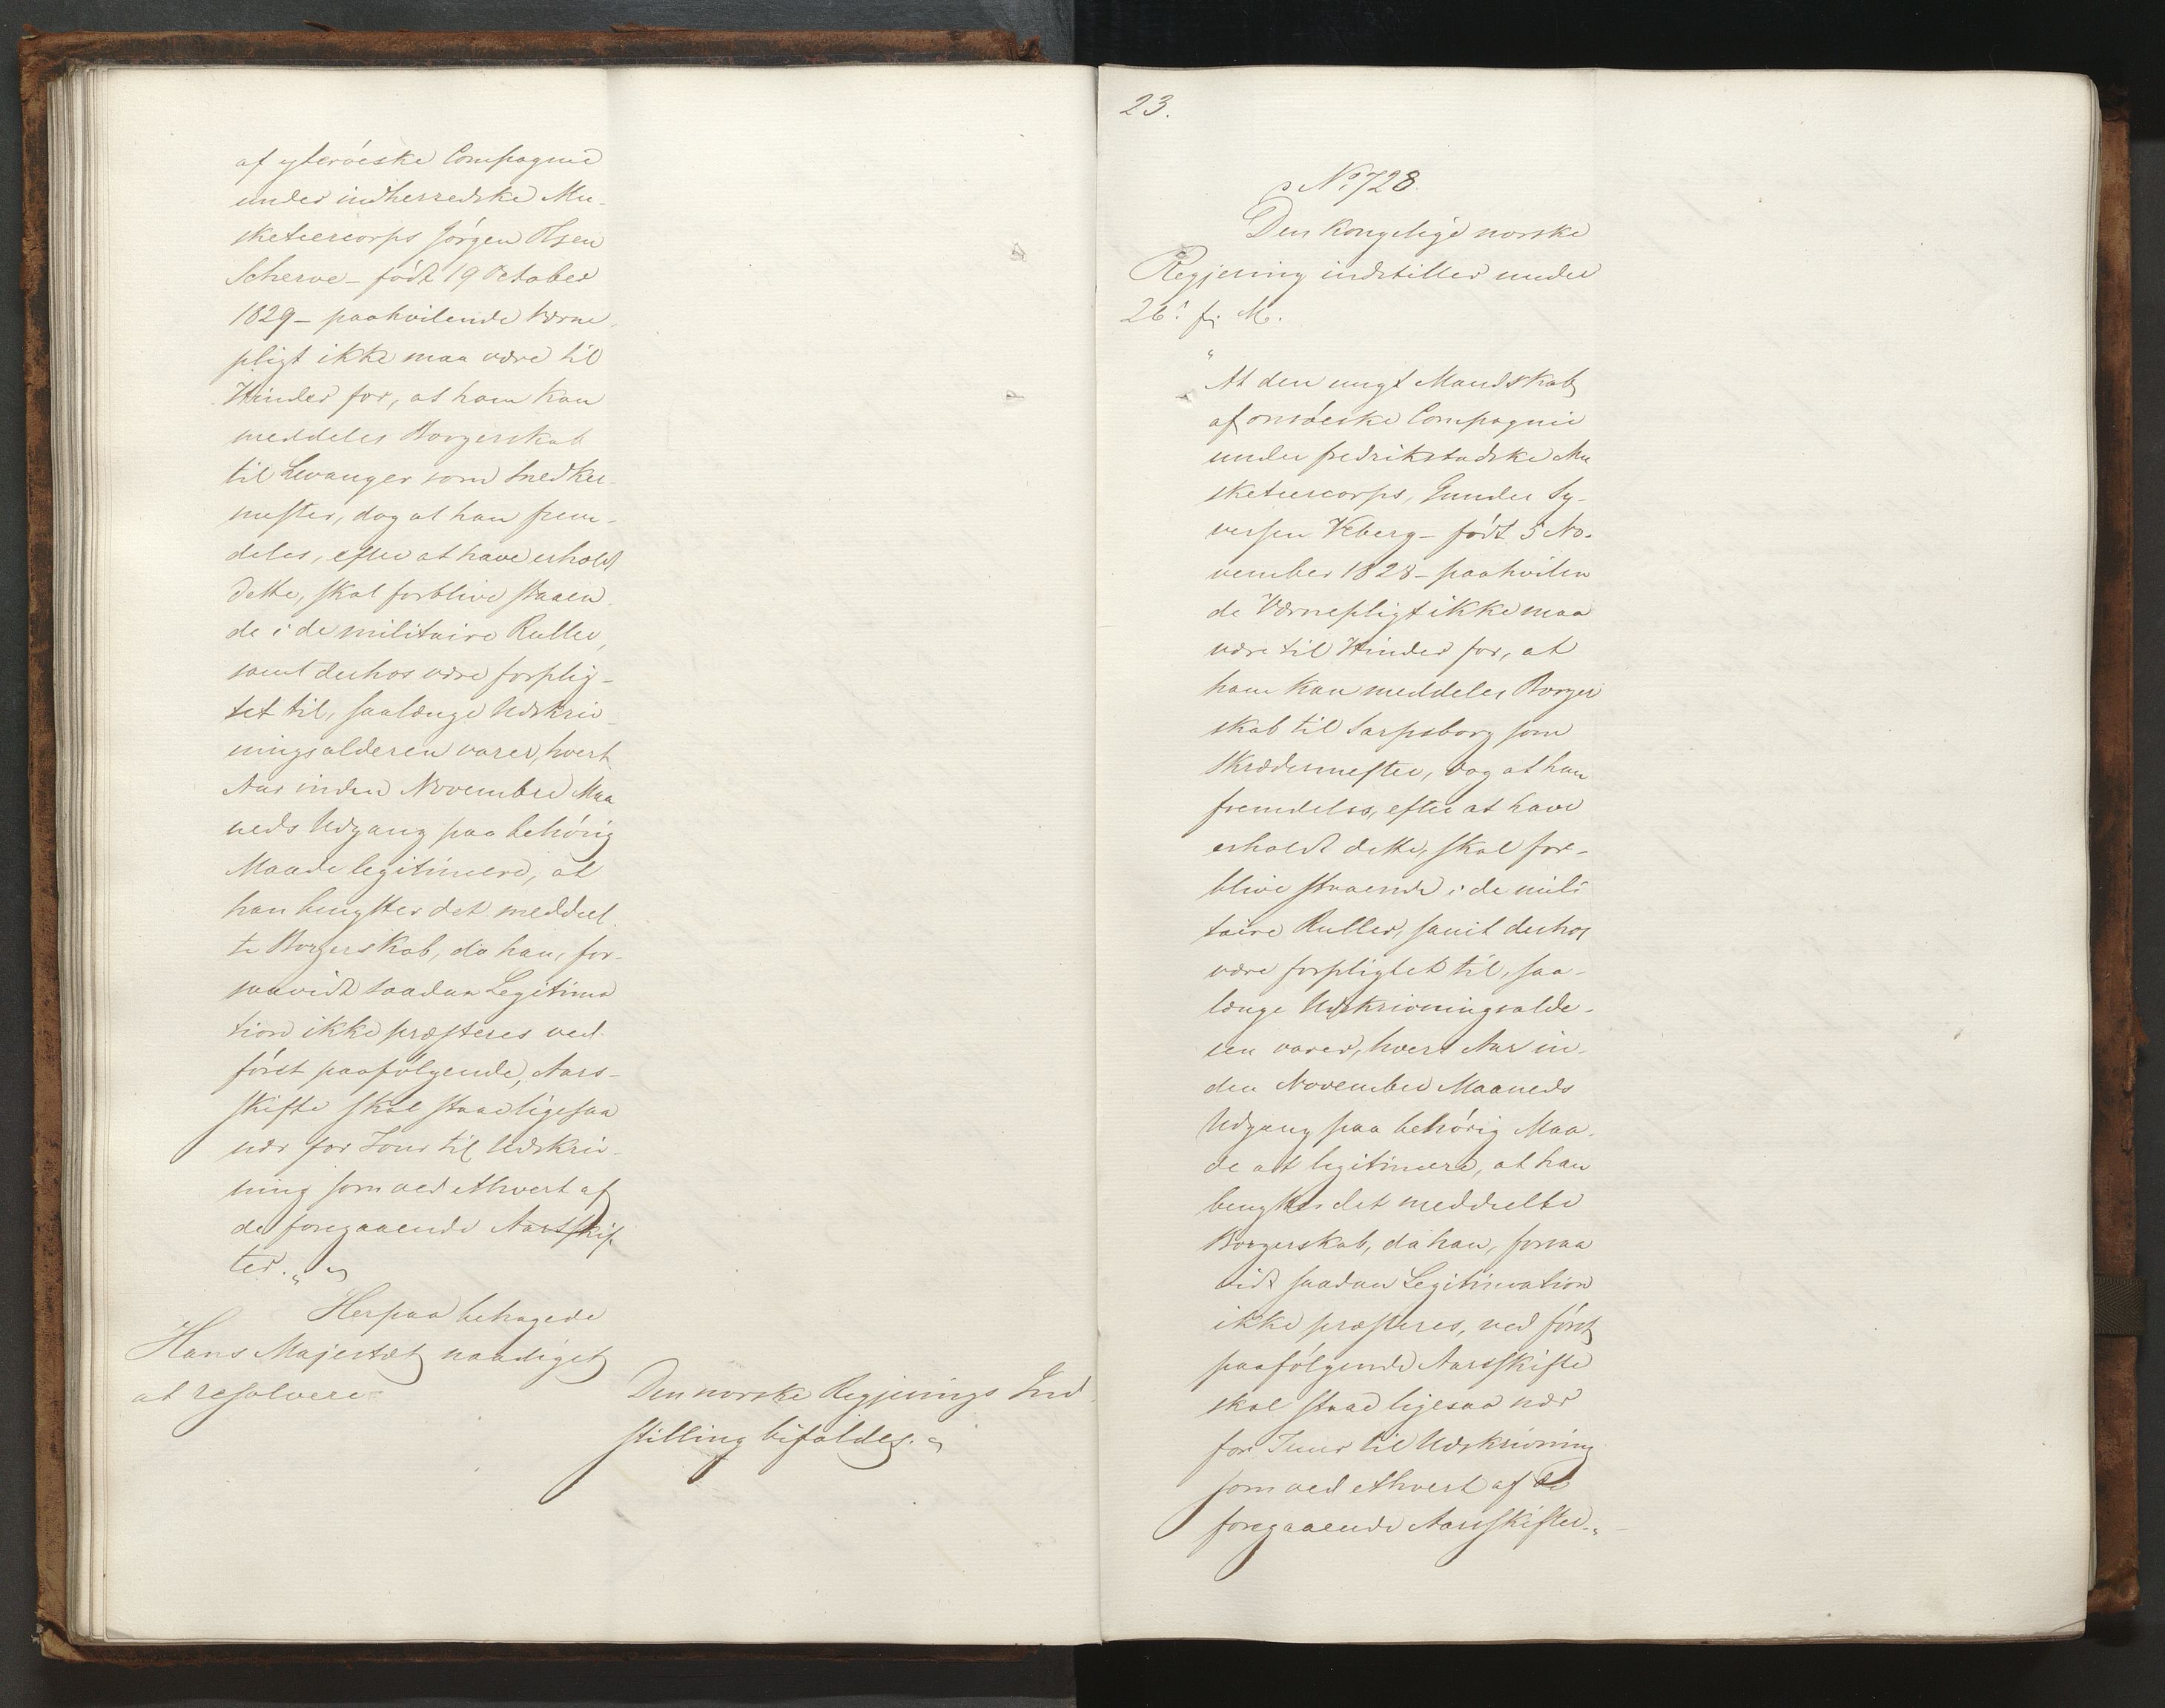 af ytteröeske Compagnie
under indherredske Mu-
sketeercorps Jörgen Olsen
Scherve – födt 19 October
1829 – paahvilende Værne-
pligt ikke maa være til
Hinder for, at ham kan
meddeles Borgerskab
til Levanger som Snedker-
mester, dog at han frem-
deles, efter at have erholdt
dette, skal forblive staaen-
de i de militaire Ruller,
samt derhos være forplig-
tet til, saalænge Udskriv-
ningsalderen varer, hvert
Aar inden November Maa
neds Udgang paa behörig
Maade legitimere, at
han benytter det meddeel
te Borgerskab, da han, for-
saavidt saadan Legitima
tion ikke præsteres ved
först paafölgende, Aars-
skifte skal staae ligesaa
nær for Tour til Udskriv-
ning som ved ethvert af
de foregaaende Aarsskif
ter. "
Herpaa behagede
Hans Majestæt naadigst
at resolvere
Den norske Regjerings Ind-
stilling bifaldes."
23.
No 728.
Den Kongelige norske
Regjering indstiller under
26. f. M.
"
At den ungt Mandskab
af onsöeske Compagnie
under fredrikstadske Mu
sketeercorps, Gunder Sy-
versen Veberg – födt 5 No-
vember 1828 – paahvilen
de Værnepligt ikke maa
være til Hinder for, at
ham kan meddeles Borger
skab til Sarpsborg som
Skrædermester, dog at han
fremdeles, efter at have
erholdt dette, skal for-
blive staaende i de mili
taire Ruller, samt derhos
være forpligtet til, saa-
længe Udskrivningsalde-
ren varer, hvert Aar in-
den November Maaneds
Udgang paa behörig Maa-
de at legitimere, at han
benytter det meddeelte
Borgerskab, da han, forsaa
vidt saadan Legitimation
ikke præsteres, ved först
paafölgende Aarsskifte
skal staae ligesaa nær
for Tour til Udskrivning
som ved ethvert af de
foregaaende Aarsskifter."